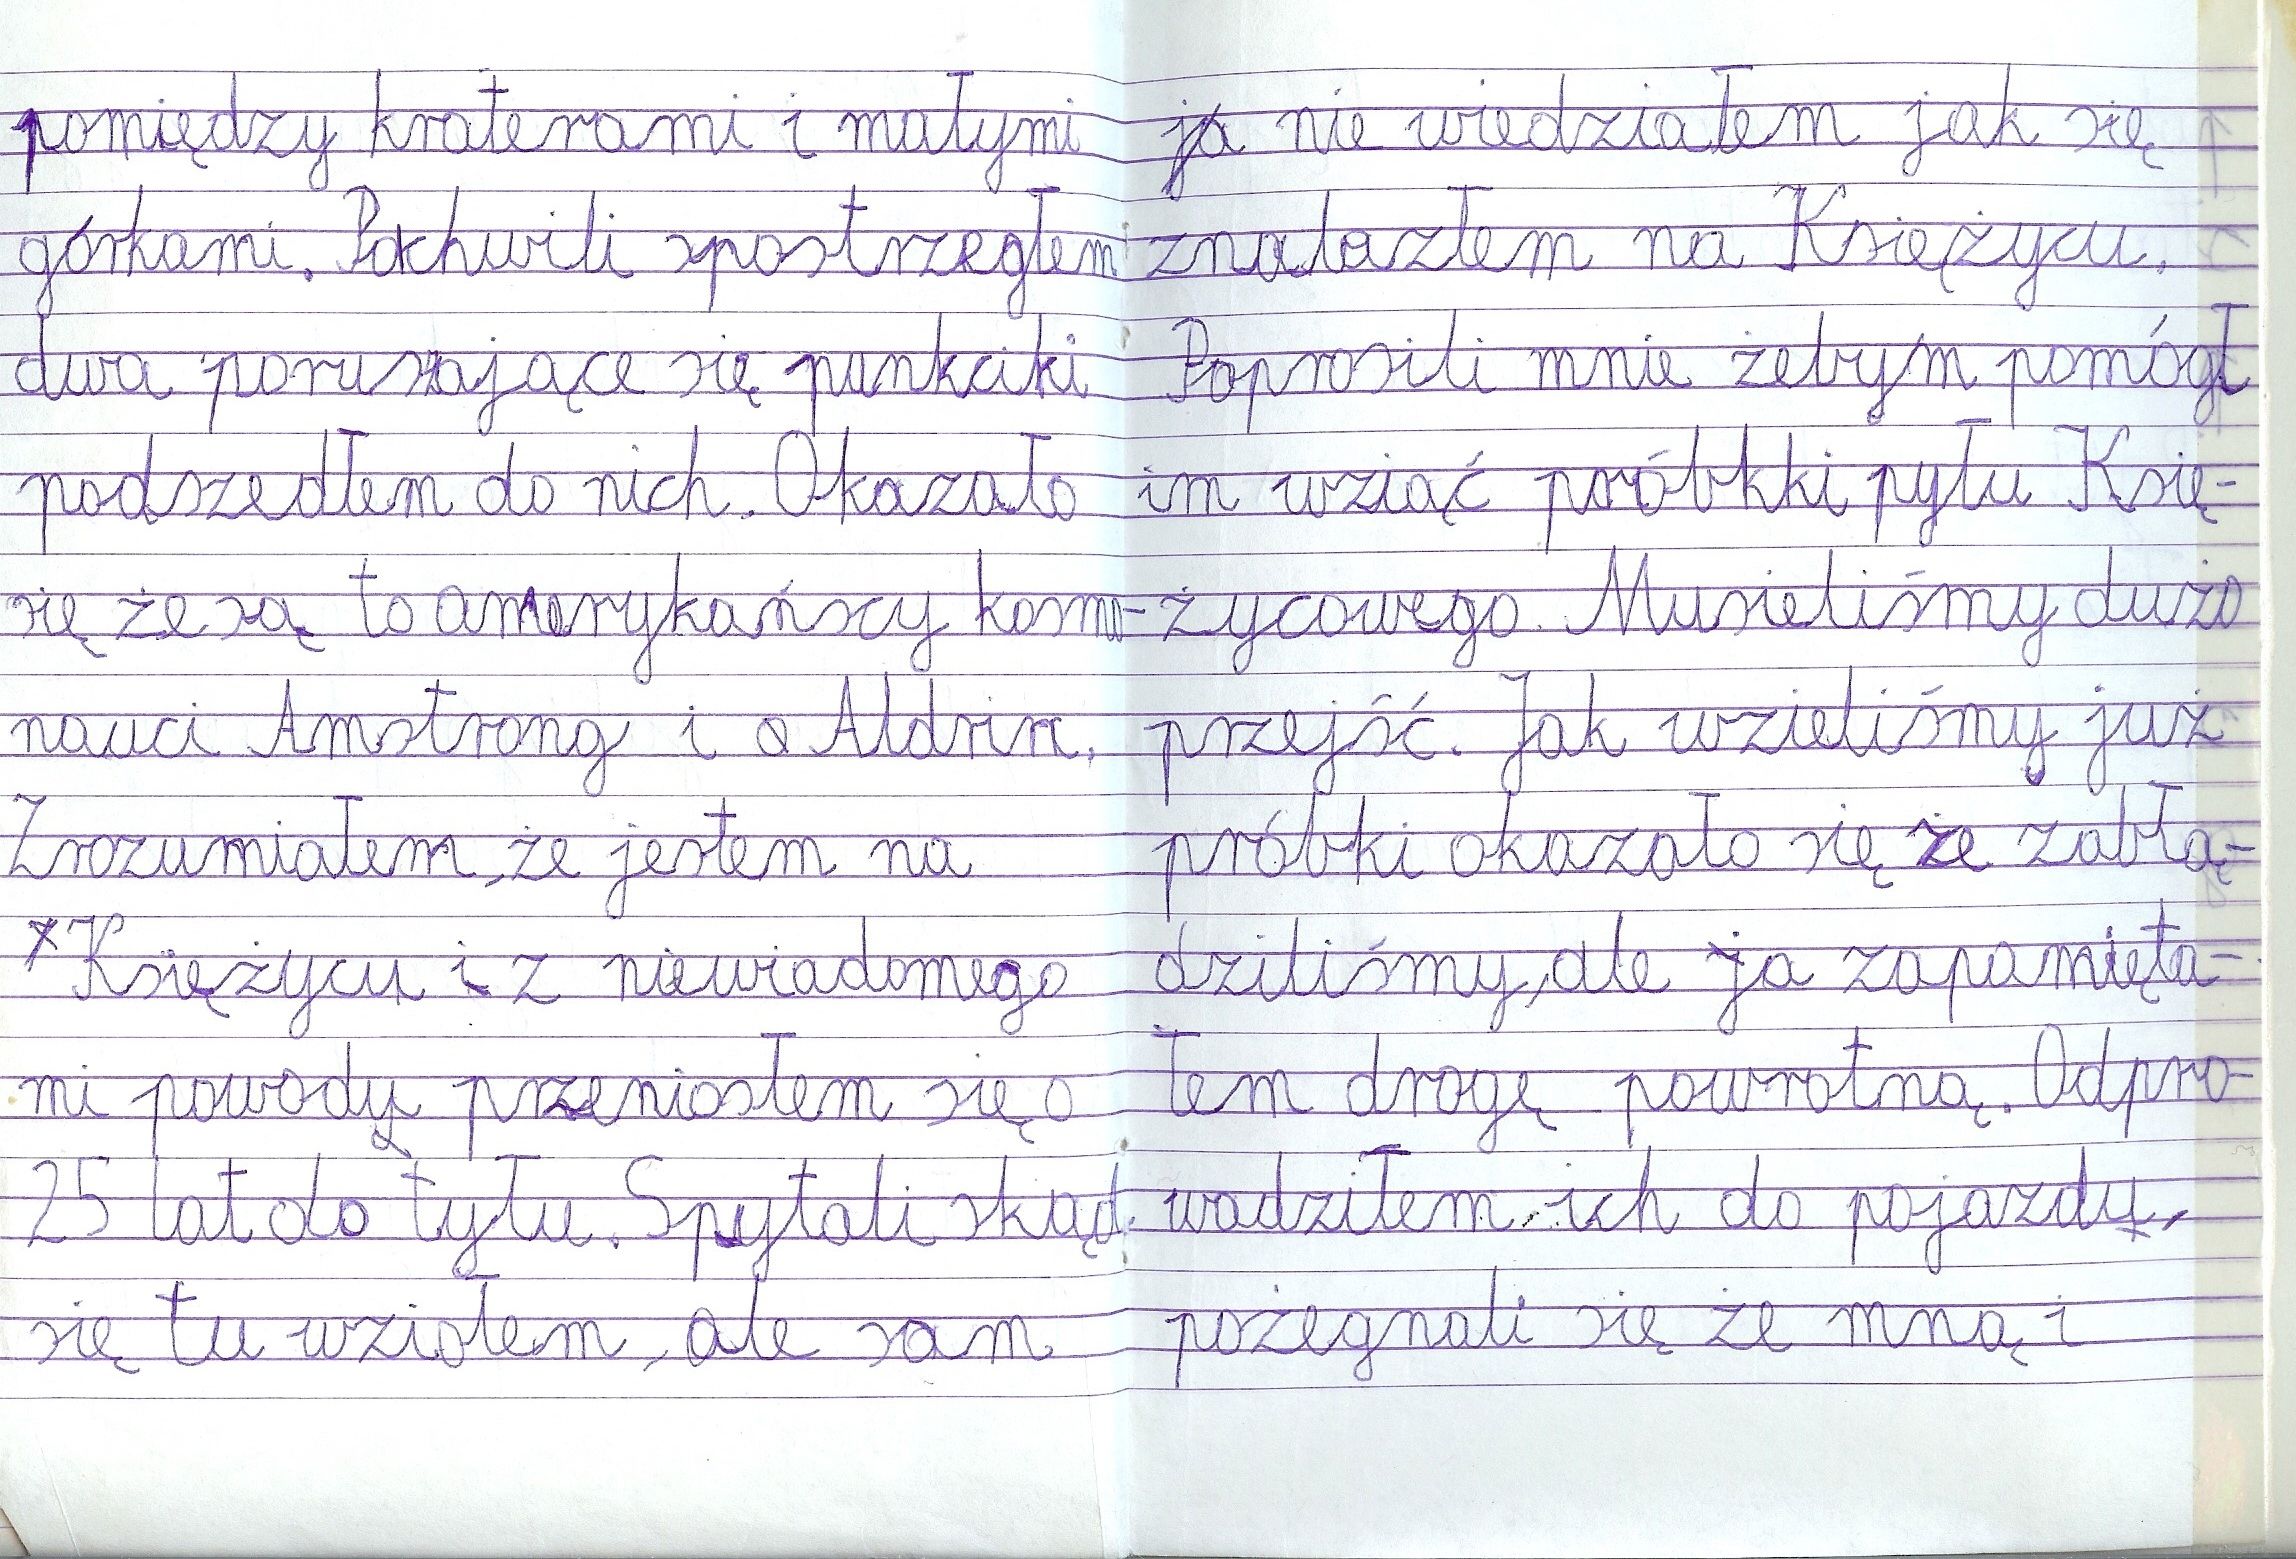 pomiędzy kraterami i małymi
górkami. Pochwili spostrzegłem
dwa poruszające się punkciki
podszedłem do nich. Okazało
się że są to amerykańscy kosmo-
nauci Amstrong i a Aldrin.
Zrozumiałem, że jestem na
Księżycu i z niewiadomego
mi powody przeniosłem się o
25 lat do tyłu. Spytali skąd
się tu wziołem, ale sam
ja nie wiedziałem jak się
znalazłem na Księżycu.
Poprosili mnie żebym pomógł
im wziąć próbkki pyłu Księ-
życowego. Musieliśmy dużo
przejść. Jak wzieliśmy już
próbki okazało się że zabłą-
dziliśmy, ale ja zapamięta-
łem drogę powrotną. Odpro-
wadziłem ich do pojazdu,
pożegnali się że mną i